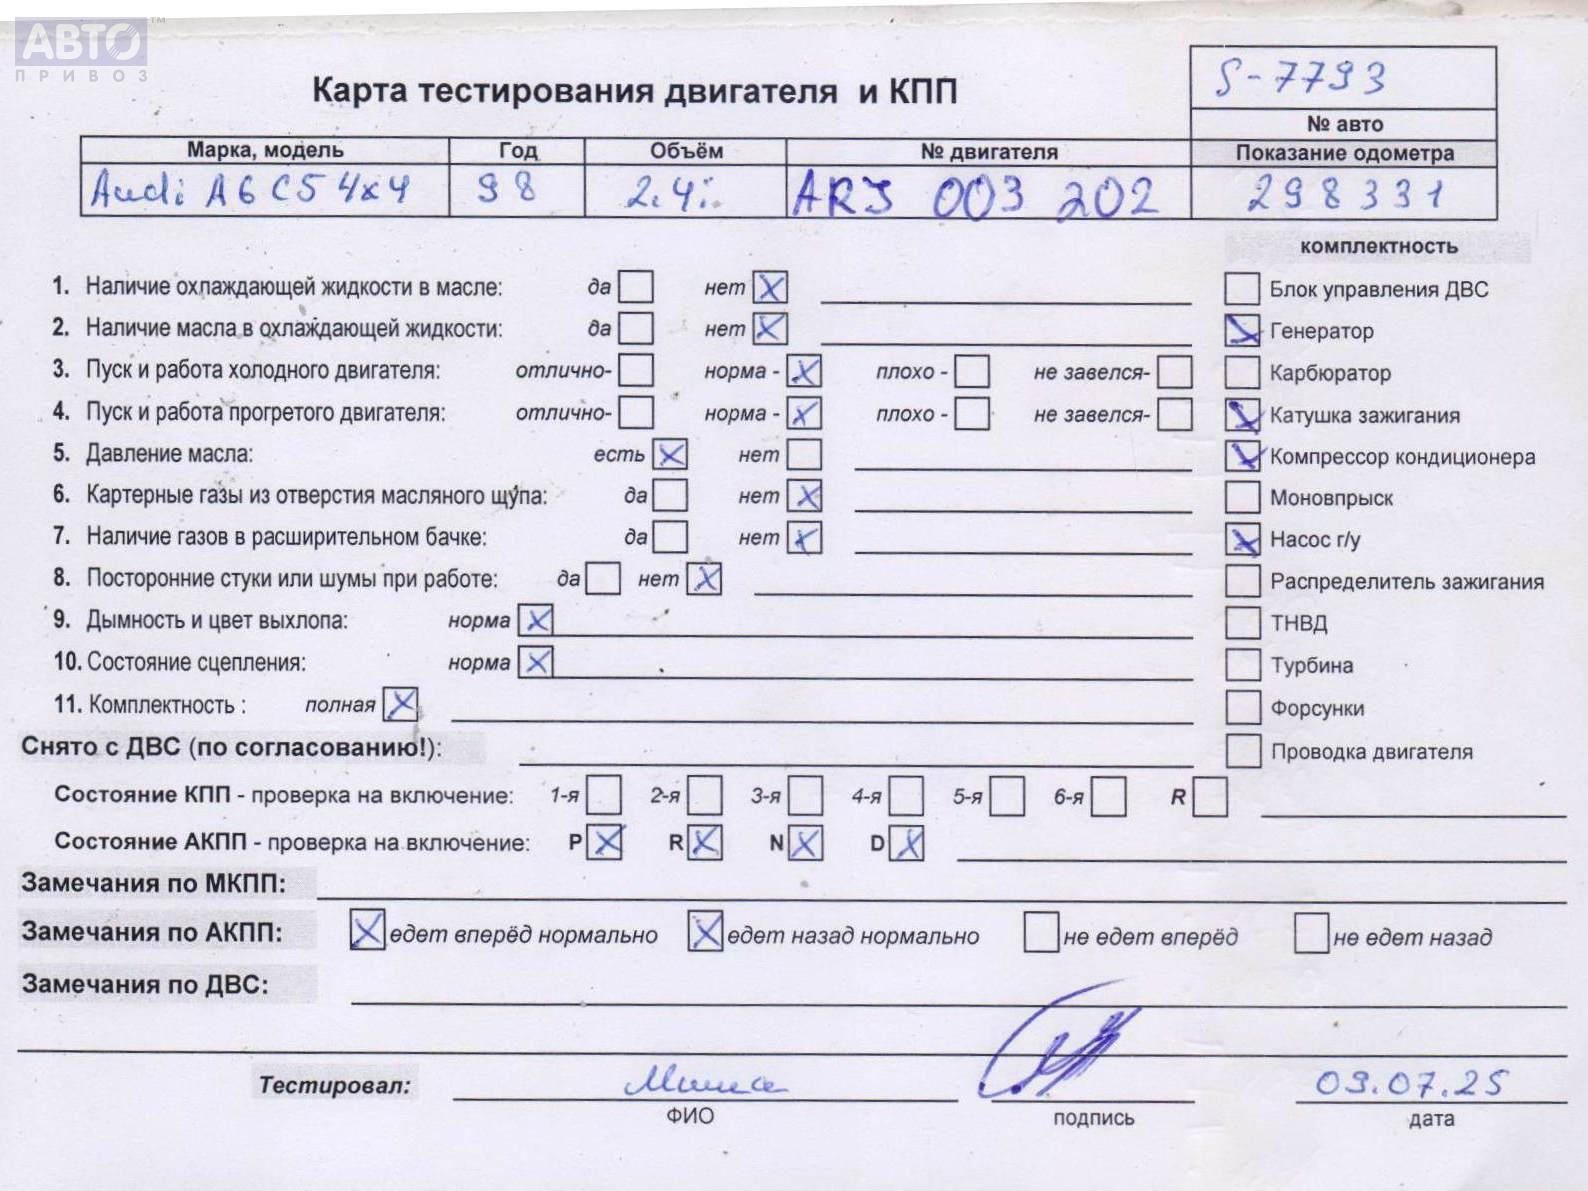 АВТО ™
ПРИВОЗ
S-7793
Карта тестирования двигателя и КПП
№ авто
Марка, модель Год Объём № двигателя Показание одометра
Audi A6 C5 4x4 98 2.4i ARJ 003 202 298331
комплектность
1. Наличие охлаждающей жидкости в масле: да нет X
Блок управления ДВС
2. Наличие масла в охлаждающей жидкости: да нет X
Генератор
3. Пуск и работа холодного двигателя: отлично- норма - X плохо - не завелся-
Карбюратор
4. Пуск и работа прогретого двигателя: отлично- норма - X плохо - не завелся-
Катушка зажигания
5. Давление масла: есть X нет
Компрессор кондиционера
6. Картерные газы из отверстия масляного щупа: да нет X
Моновпрыск
7. Наличие газов в расширительном бачке: да нет X
Насос г/у
8. Посторонние стуки или шумы при работе: да нет X
Распределитель зажигания
9. Дымность и цвет выхлопа: норма X
ТНВД
10. Состояние сцепления: норма X
Турбина
11. Комплектность : полная X
Форсунки
Снято с ДВС (по согласованию!):
Проводка двигателя
Состояние КПП - проверка на включение: 1-я 2-я 3-я 4-я 5-я 6-я R
Состояние АКПП - проверка на включение: P X R X N X D X
Замечания по МКПП:
Замечания по АКПП: X едет вперёд нормально X едет назад нормально не едет вперёд не едет назад
Замечания по ДВС:
Тестировал: 09.07.25
ФИО подпись дата